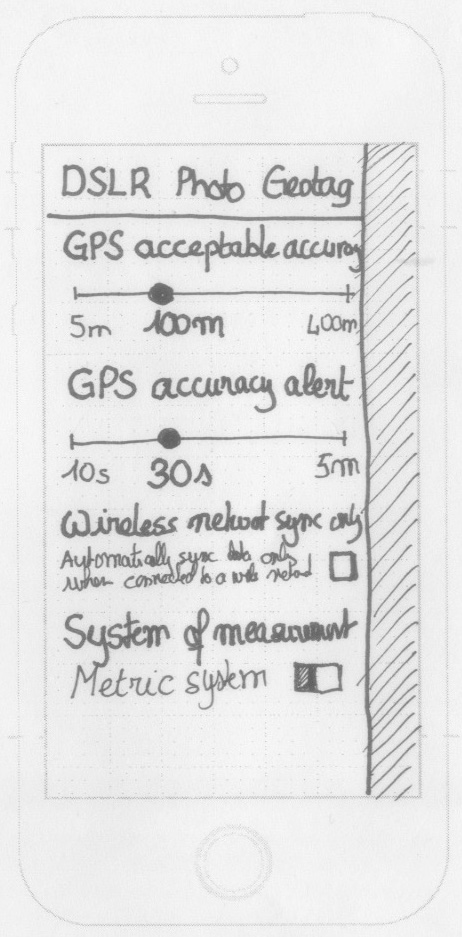 DSLR Photo Geotag
GPS acceptable accuracy
5m 100m 400m
GPS accuracy alert
10s 30s 5m
Wireless networt sync only
Automatically sync data only
when connected to a
System of measurement
Metric system